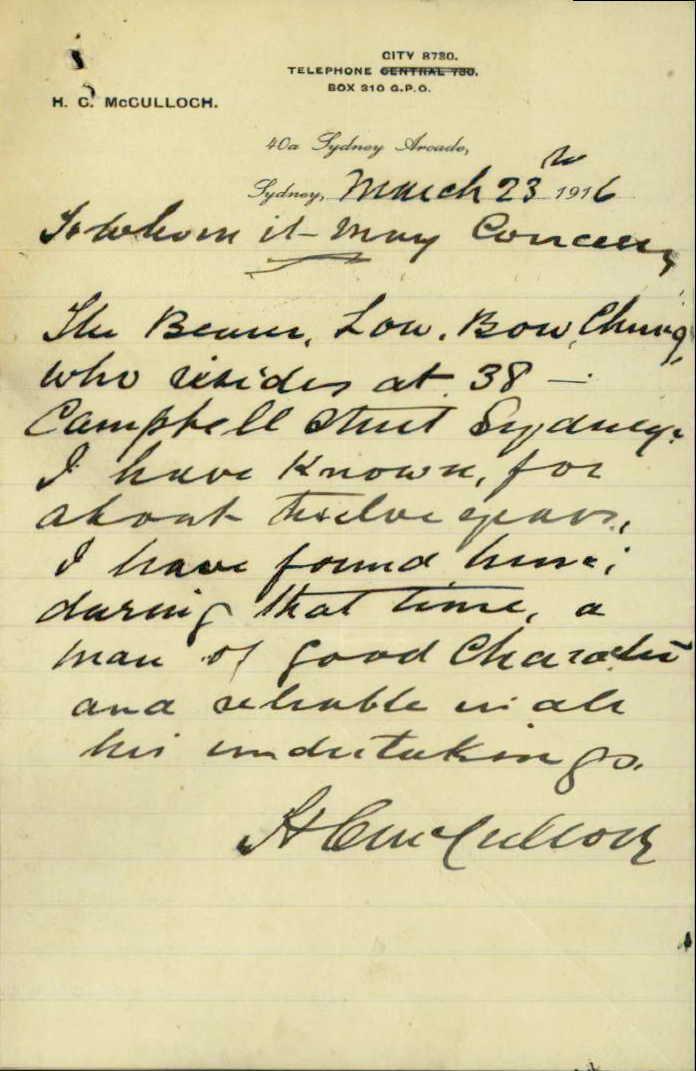 CITY 8730.
TELEPHONE CENTRAL 730.
BOX 310 G.P.O.
H. C. McCULLOCH.
40a Sydney Arcade,
Sydney, March 23 1916
To whom it may Concern,
The Bearer, Low. Bow, Chung,
who resides at 38 —
Campbell Street Sydney.
I have Known, for
about twelve years,
I have found him;
during that time, a
man of good Character
and reliable in all
his undertakings.
H C McCulloch